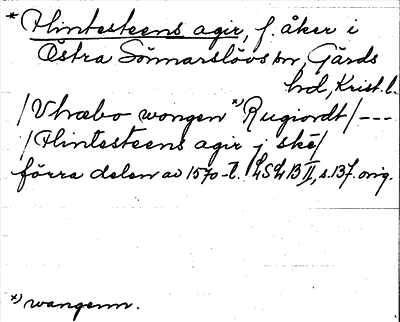 * Flintesteens agir, f. åker i
Östra Sönnarslövs sn, Gärds
hd, Krist. l.
/Vbræbo wongen *) Rugiordt/ ---
/Flintesteens agir j ske/
förra delen av 1570-t. LSLB II, s. 137. orig.
*) wangenn.